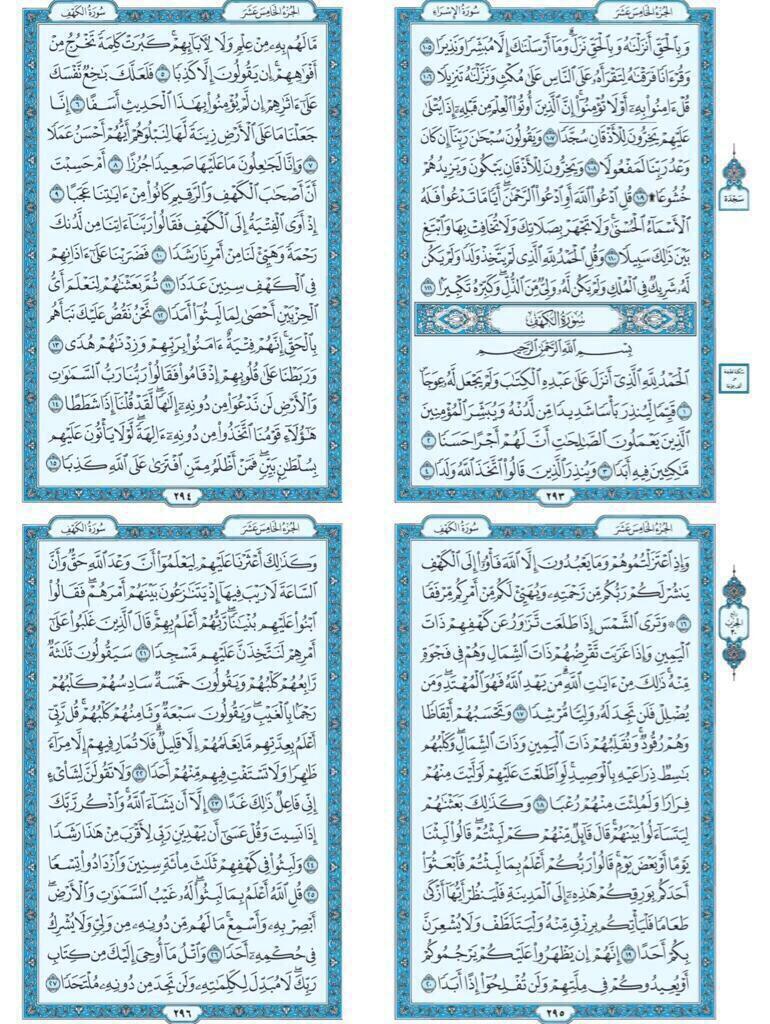 الجزء الخامس عشر
سورة الإسراء
وبالحق أنزلناه وبالحق نزل وما أرسلناك إلا مبشرا ونذيرا ١٠٥
وقرءانا فرقناه لتقرأه على الناس على مكث ونزلناه تنزيلا ١٠٦
قل ءامنوا به أو لا تؤمنوا إن الذين أوتوا العلم من قبله إذا يتلى
عليهم يخرون للأذقان سجدا ١٠٧ ويقولون سبحان ربنا إن كان
وعد ربنا لمفعولا ١٠٨ ويخرون للأذقان يبكون ويزيدهم
خشوعا ۩ ١٠٩ قل ادعوا الله أو ادعوا الرحمن أيا ما تدعوا فله
الأسماء الحسنى ولا تجهر بصلاتك ولا تخافت بها وابتغ
بين ذلك سبيلا ١١٠ وقل الحمد لله الذي لم يتخذ ولدا ولم يكن
له شريك في الملك ولم يكن له ولي من الذل وكبره تكبيرا ١١١
سورة الكهف
بسم الله الرحمن الرحيم
الحمد لله الذي أنزل على عبده الكتاب ولم يجعل له عوجا
١ قيما لينذر بأسا شديدا من لدنه ويبشر المؤمنين
الذين يعملون الصالحات أن لهم أجرا حسنا ٢
ماكثين فيه أبدا ٣ وينذر الذين قالوا اتخذ الله ولدا ٤
٢٩٣
سجدة
الجزء الخامس عشر
سورة الكهف
ما لهم به من علم ولا لآبائهم كبرت كلمة تخرج من
أفواههم إن يقولون إلا كذبا ٥ فلعلك باخع نفسك
على ءاثارهم إن لم يؤمنوا بهذا الحديث أسفا ٦ إنا
جعلنا ما على الأرض زينة لها لنبلوهم أيهم أحسن عملا
٧ وإنا لجاعلون ما عليها صعيدا جرزا ٨ أم حسبت
أن أصحاب الكهف والرقيم كانوا من ءاياتنا عجبا ٩
إذ أوى الفتية إلى الكهف فقالوا ربنا ءاتنا من لدنك
رحمة وهيئ لنا من أمرنا رشدا ١٠ فضربنا على ءاذانهم
في الكهف سنين عددا ١١ ثم بعثناهم لنعلم أي
الحزبين أحصى لما لبثوا أمدا ١٢ نحن نقص عليك نبأهم
بالحق إنهم فتية ءامنوا بربهم وزدناهم هدى ١٣
وربطنا على قلوبهم إذ قاموا فقالوا ربنا رب السماوات
والأرض لن ندعوا من دونه إلها لقد قلنا إذا شططا ١٤
هؤلاء قومنا اتخذوا من دونه ءالهة لولا يأتون عليهم
بسلطان بين فمن أظلم ممن افترى على الله كذبا ١٥
٢٩٤
الجزء الخامس عشر
سورة الكهف
وإذ اعتزلتموهم وما يعبدون إلا الله فأوا إلى الكهف
ينشر لكم ربكم من رحمته ويهيئ لكم من أمركم مرفقا
١٦ ۞ وترى الشمس إذا طلعت تزاور عن كهفهم ذات
اليمين وإذا غربت تقرضهم ذات الشمال وهم في فجوة
منه ذلك من ءايات الله من يهد الله فهو المهتد ومن
يضلل فلن تجد له وليا مرشدا ١٧ وتحسبهم أيقاظا
وهم رقود ونقلبهم ذات اليمين وذات الشمال وكلبهم
باسط ذراعيه بالوصيد لو اطلعت عليهم لوليت منهم
فرارا ولملئت منهم رعبا ١٨ وكذلك بعثناهم
ليتساءلوا بينهم قال قائل منهم كم لبثتم قالوا لبثنا
يوما أو بعض يوم قالوا ربكم أعلم بما لبثتم فابعثوا
أحدكم بورقكم هذه إلى المدينة فلينظر أيها أزكى
طعاما فليأتكم برزق منه وليتلطف ولا يشعرن
بكم أحدا ١٩ إنهم إن يظهروا عليكم يرجموكم
أو يعيدوكم في ملتهم ولن تفلحوا إذا أبدا ٢٠
٢٩٥
الحزب
٣٠
الجزء الخامس عشر
سورة الكهف
وكذلك أعثرنا عليهم ليعلموا أن وعد الله حق وأن
الساعة لا ريب فيها إذ يتنازعون بينهم أمرهم فقالوا
ابنوا عليهم بنيانا ربهم أعلم بهم قال الذين غلبوا على
أمرهم لنتخذن عليهم مسجدا ٢١ سيقولون ثلاثة
رابعهم كلبهم ويقولون خمسة سادسهم كلبهم
رجما بالغيب ويقولون سبعة وثامنهم كلبهم قل ربي
أعلم بعدتهم ما يعلمهم إلا قليل فلا تمار فيهم إلا مراء
ظاهرا ولا تستفت فيهم منهم أحدا ٢٢ ولا تقولن لشاىء
إني فاعل ذلك غدا ٢٣ إلا أن يشاء الله واذكر ربك
إذا نسيت وقل عسى أن يهدين ربي لأقرب من هذا رشدا
٢٤ ولبثوا في كهفهم ثلاث مائة سنين وازدادوا تسعا
٢٥ قل الله أعلم بما لبثوا له غيب السماوات والأرض
أبصر به وأسمع ما لهم من دونه من ولي ولا يشرك
في حكمه أحدا ٢٦ واتل ما أوحي إليك من كتاب
ربك لا مبدل لكلماته ولن تجد من دونه ملتحدا ٢٧
٢٩٦